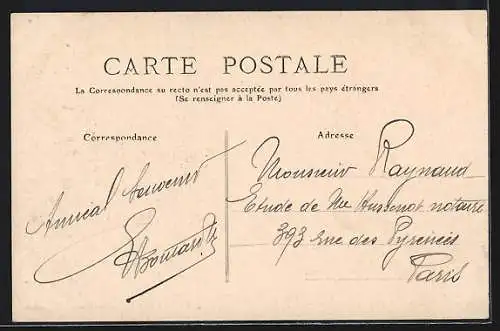 CARTE POSTALE
La Correspondance au recto n'est pas acceptée par tous les pays étrangers
(Se renseigner à la Poste)
Correspondance
Adresse
Amical souvenir
Monsieur Raynaud
Etude de Me Hussenot notaire
393 rue des Pyrenées
Paris